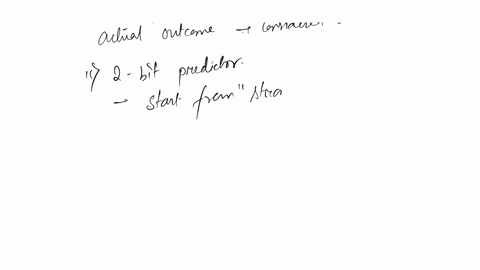 actual outcome →
ii) 2-bit predictor.
→ start from "stro